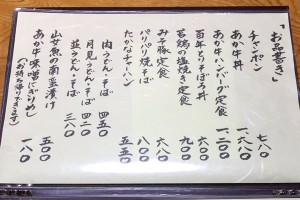 「お品書き」
チャンポン 七八〇
あか牛丼 一、六八〇
あか牛ハンバーグ定食 一、二〇〇
百年とりそぼろ丼 六八〇
若鶏の塩焼き定食 九〇〇
みそ豚定食 六八〇
パリパリ焼そば 八〇〇
たかなチャーハン 五五〇
肉うどん・そば 四五〇
月見うどん・そば 四二〇
並うどん・そば 三八〇
山女魚の南蛮漬け 五〇〇
あか牛味噌にぎりめし 一八〇
(お持ち帰りできます)